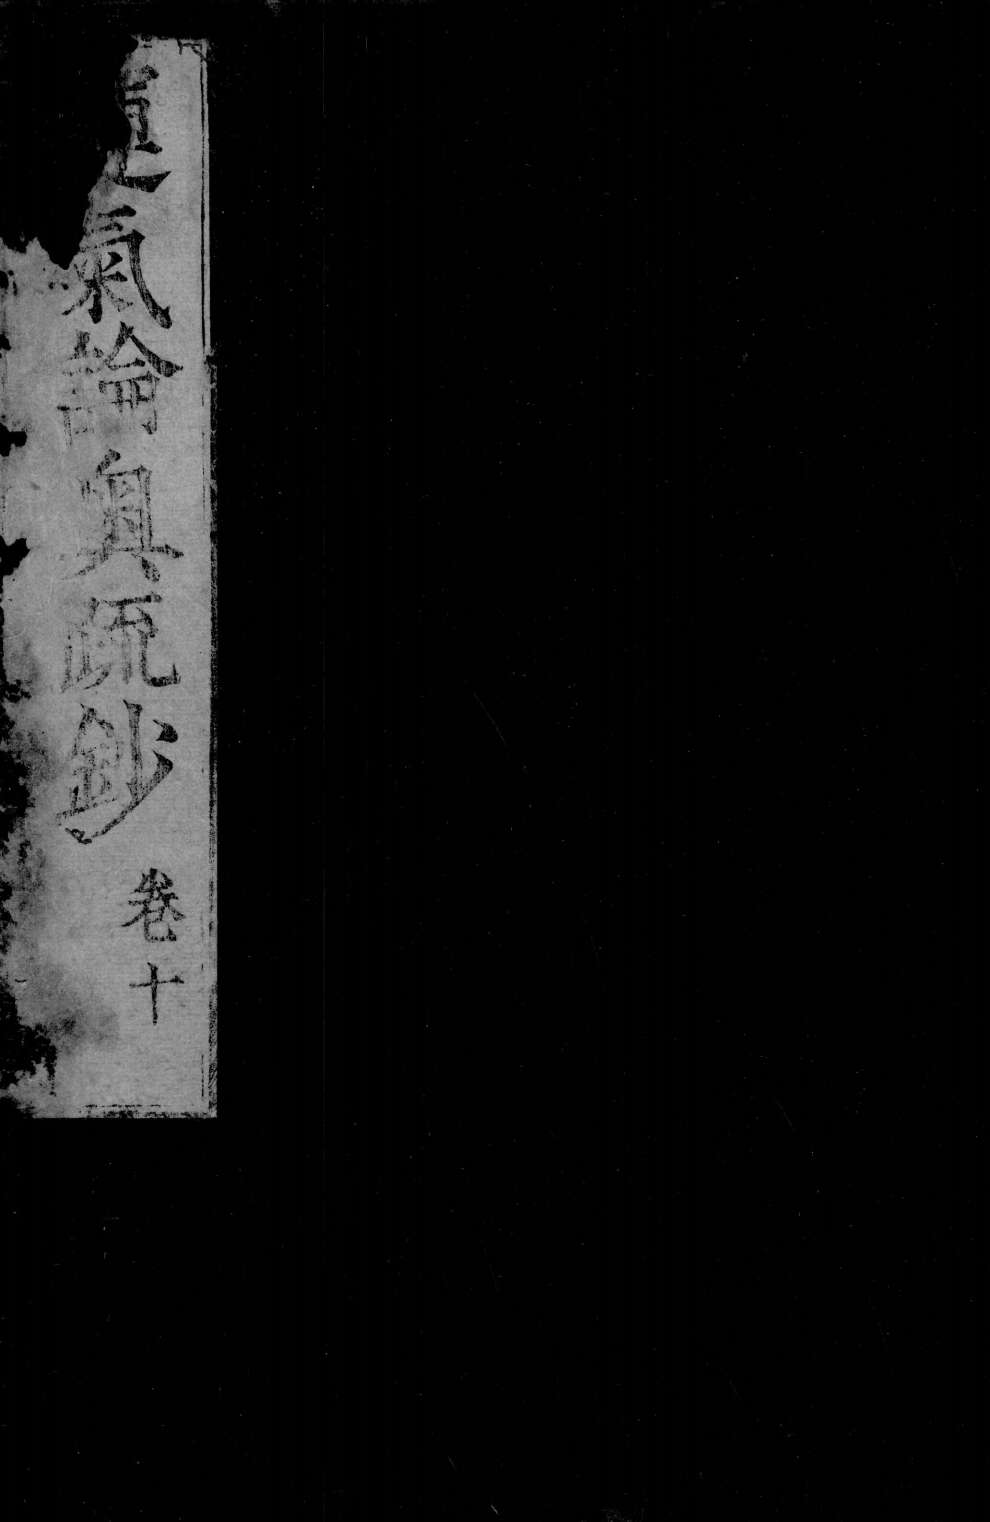 氣論奥疏鈔 卷十